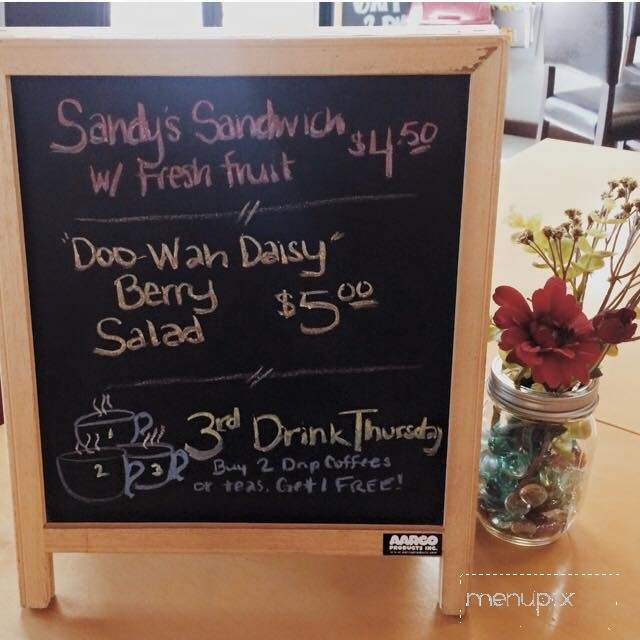 Sandy's Sandwich
w/ Fresh fruit $4.50
"Doo-Wah Daisy"
Berry
Salad $5.00
1
2 3
3rd Drink Thursday
Buy 2 Drip Coffees
or teas, Get 1 FREE!
AARCO
PRODUCTS INC.
menupix